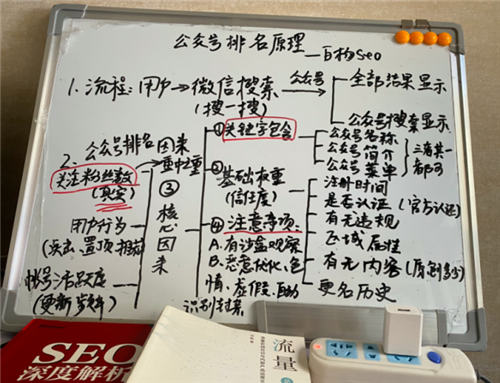 公众号排名原理—百构seo
1. 流程: 用户→微信搜索
(搜一搜)
公众号
全部结果显示
公众号搜索显示
2. 公众号排名因素
重中之重
关注粉丝数
(真实)
用户行为
(点击、置顶、
帐号活跃度
(更新
③核心因素
①关键字包含
公众号名称
公众号简介
公众号菜单
三者其一
都可
②
基础权重
(信任度)
注册时间
是否认证(官方认证)
有无违规
飞域属性
有无内容(原创多少)
更名历史
④注意事项
A. 有涉盘观察
B. 恶意优化、色
情、虚假、
识别封杀
SEO
深度解析
流量